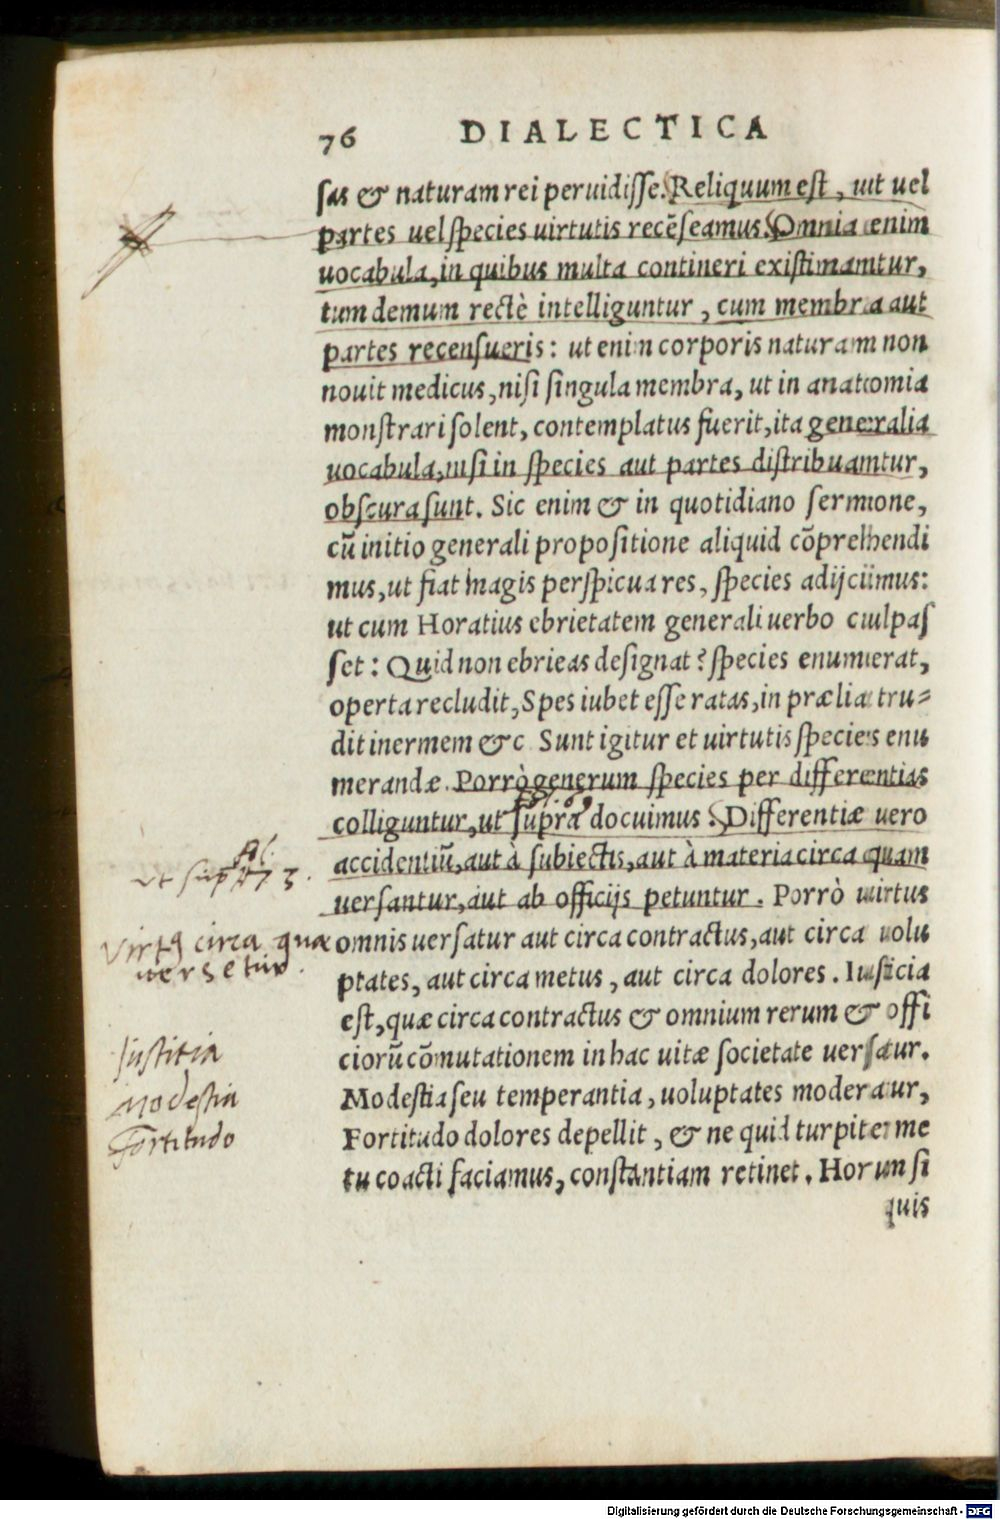 76 DIALECTICA
sas & naturam rei peruidisse. Reliquum est, ut uel
partes uel species uirtutis recẽseamus. Omnia enim
uocabula, in quibus multa contineri existimamtur,
tum demum rectè intelliguntur, cum membra aut
partes recensueris: ut enim corporis naturam non
nouit medicus, nisi singula membra, ut in anatomia
monstrari solent, contemplatus fuerit, ita generalia
uocabula, nisi in species aut partes distribuamtur,
obscura sunt. Sic enim & in quotidiano sermone,
cũ initio generali propositione aliquid cõprehendi
mus, ut fiat magis perspicua res, species adijcimus:
ut cum Horatius ebrietatem generali uerbo culpas
set: Quid non ebrieas designat? species enumerat,
operta recludit, Spes iubet esse ratas, in prælia tru=
dit inermem &c Sunt igitur et uirtutis species enu
merandæ. Porrò generum species per differentias
colliguntur, ut supra docuimus. Differentiæ uero
accidentiũ, aut à subiectis, aut à materia circa quam
uersantur, aut ab officijs petuntur. Porrò uirtus
omnis uersatur aut circa contractus, aut circa uolu
ptates, aut circa metus, aut circa dolores. Iusticia
est, quæ circa contractus & omnium rerum & offi
ciorũ cõmutationem in hac uitæ societate uersatur.
Modestia seu temperantia, uoluptates moderatur,
Fortitudo dolores depellit, & ne quid turpiter me
tu coacti faciamus, constantiam retinet. Horum si
quis
ut sup 73.
Virtꝰ circa quæ
versetur.
Justitia
Modestia
Fortitudo
Digitalisierung gefördert durch die Deutsche Forschungsgemeinschaft - DFG